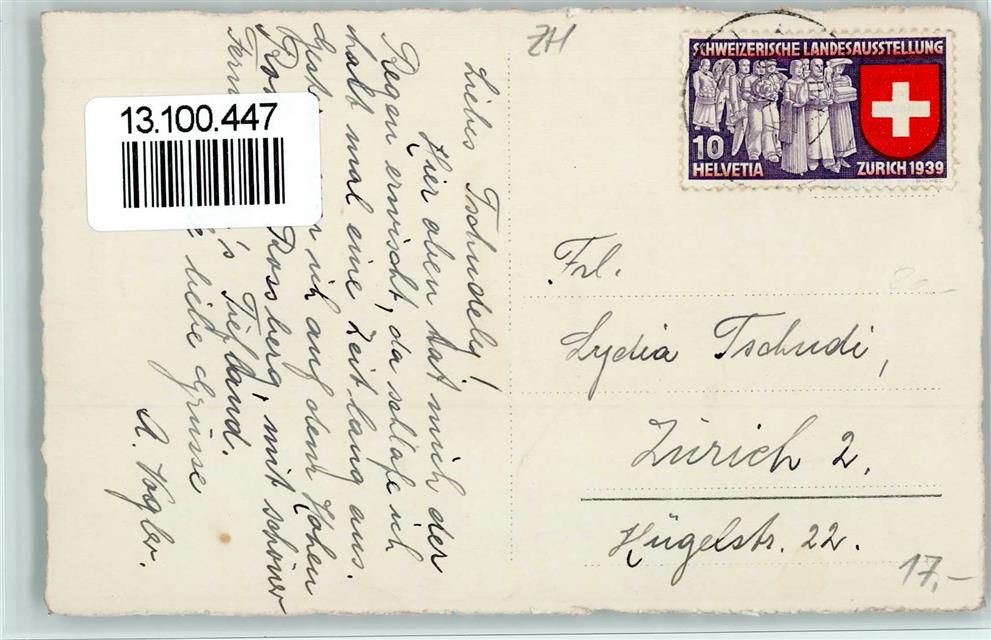 ZH
SCHWEIZERISCHE LANDESAUSSTELLUNG
10
HELVETIA
ZURICH 1939
13.100.447
Liebes Tschudely!
Hier oben hat mich der
Regen erwischt, da schlafe ich
halt mal eine Zeit lang aus.
Gestern ich auf dem Hohen
Rossberg, mit schöner
Fern 's Tiefland.
liebe Grüsse
A. Vogler.
Frl.
Lydia Tschudi,
Zürich 2.
Hügelstr. 22.
17,-